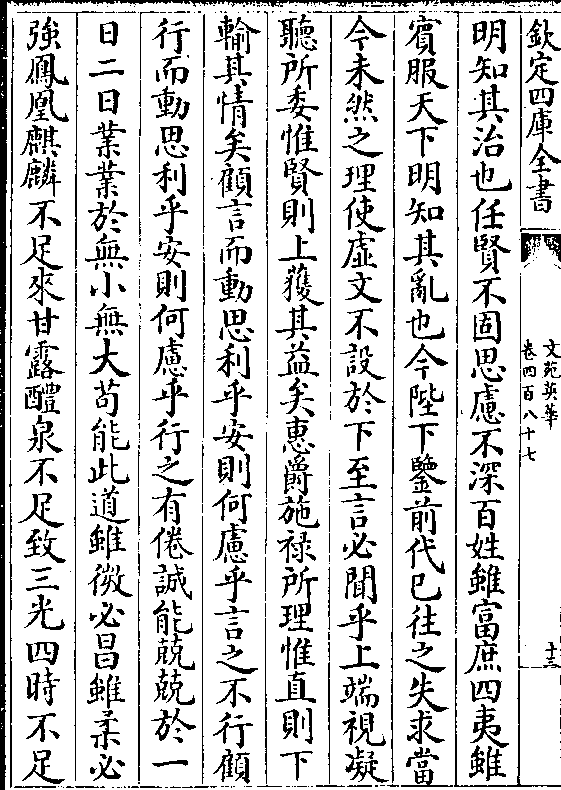 欽定四庫全書
文苑英華
卷四百八十七
十三
明知其治也任賢不固思慮不深百姓雖富庶四夷雖
賓服天下明知其亂也今陛下鑒前代已往之失求當
今未然之理使虛文不設於下至言必聞乎上端視凝
聽所委惟賢則上獲其益矣惠爵施祿所理惟直則下
輸其情矣顧言而動思利乎安則何慮乎言之不行顧
行而動思利乎安則何慮乎行之有倦誠能兢兢於一
日二日業業於無小無大苟能此道雖微必昌雖柔必
強鳳凰麒麟不足來甘露醴泉不足致三光四時不足